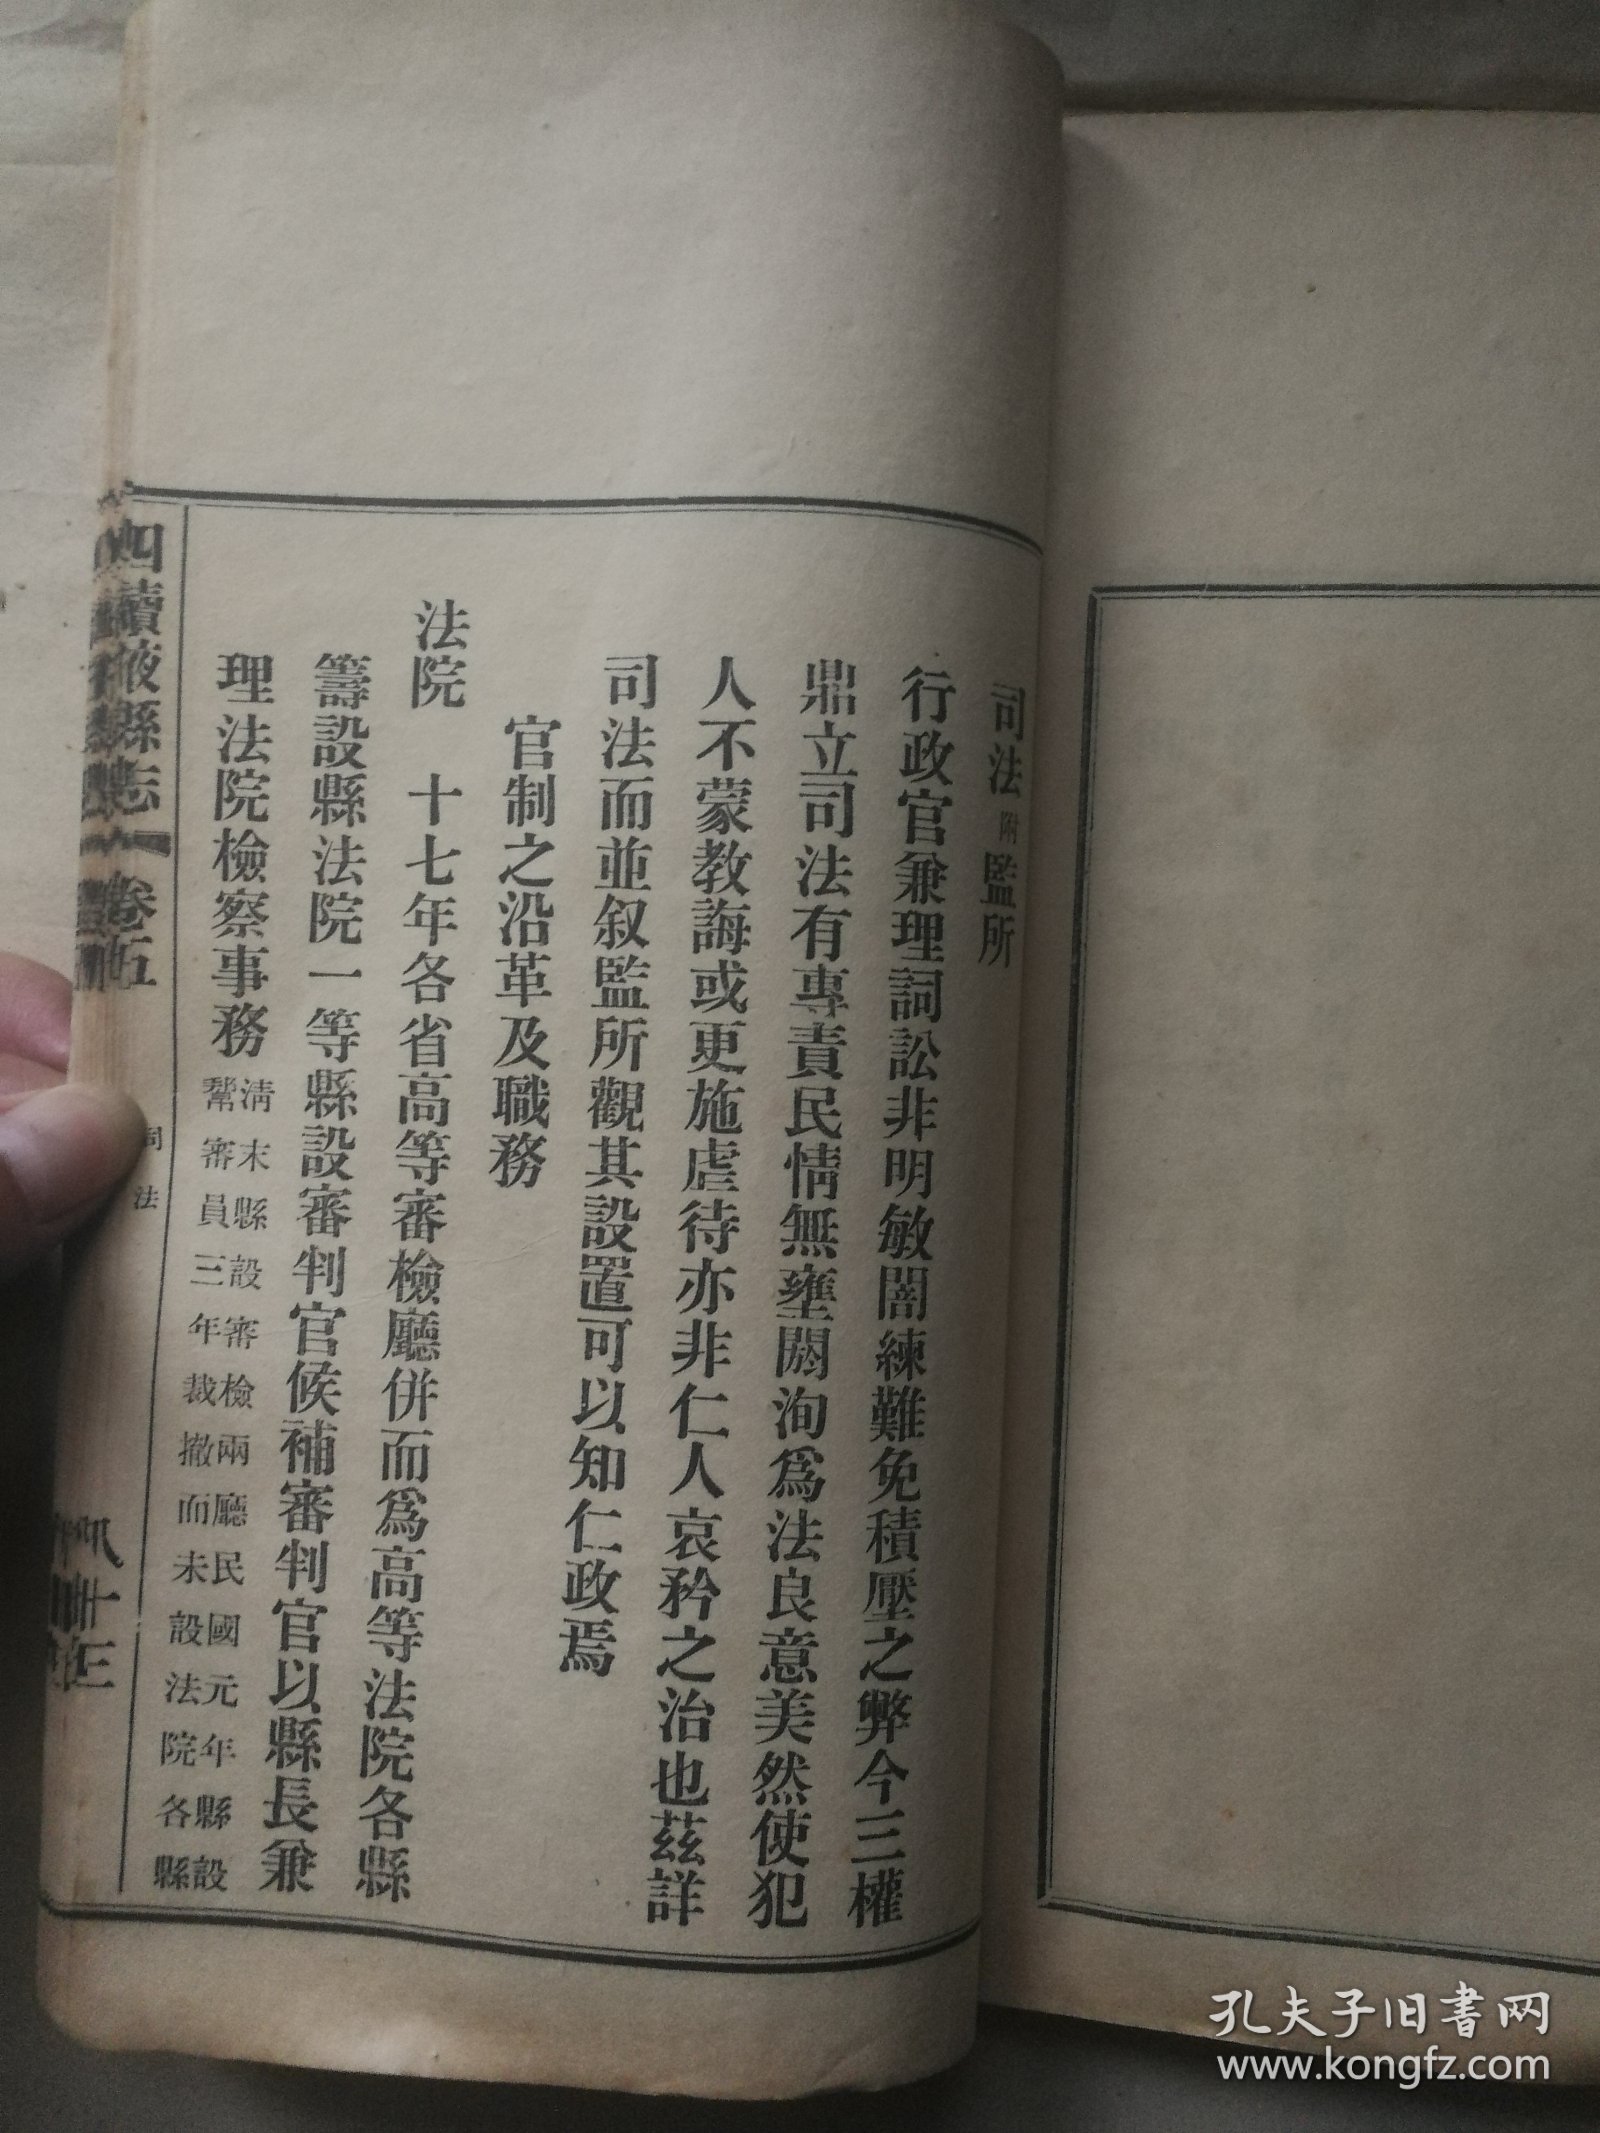 司法附監所
行政官兼理詞訟非明敏闇練難免積壓之弊今三權
鼎立司法有專責民情無壅閼洵爲法良意美然使犯
人不蒙教誨或更施虐待亦非仁人哀矜之治也茲詳
司法而並叙監所觀其設置可以知仁政焉
官制之沿革及職務
法院　十七年各省高等審檢廳併而爲高等法院各縣
籌設縣法院一等縣設審判官候補審判官以縣長兼
理法院檢察事務
清末縣設審檢兩廳民國元年縣設
幫審員三年裁撤而未設法院各縣
四續掖縣志
卷五
司法
八十三
孔夫子旧书网
www.kongfz.com